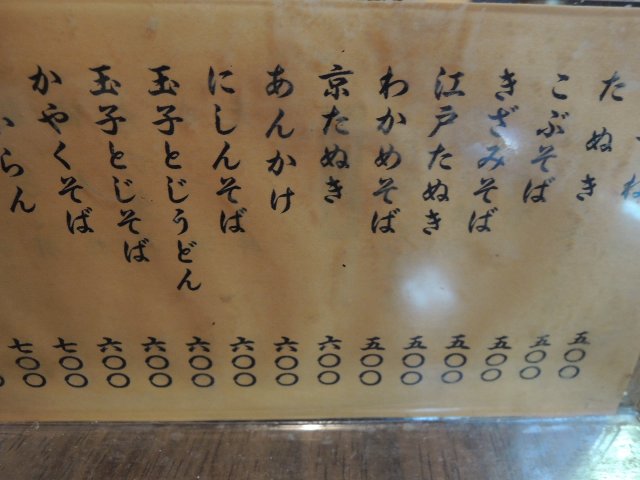 たぬき
こぶそば
きざみそば
江戸たぬき
わかめそば
京たぬき
あんかけ
にしんそば
玉子とじうどん
玉子とじそば
かやくそば
らん
五〇〇
五〇〇
五〇〇
五〇〇
五〇〇
五〇〇
六〇〇
六〇〇
六〇〇
六〇〇
六〇〇
六〇〇
七〇〇
七〇〇